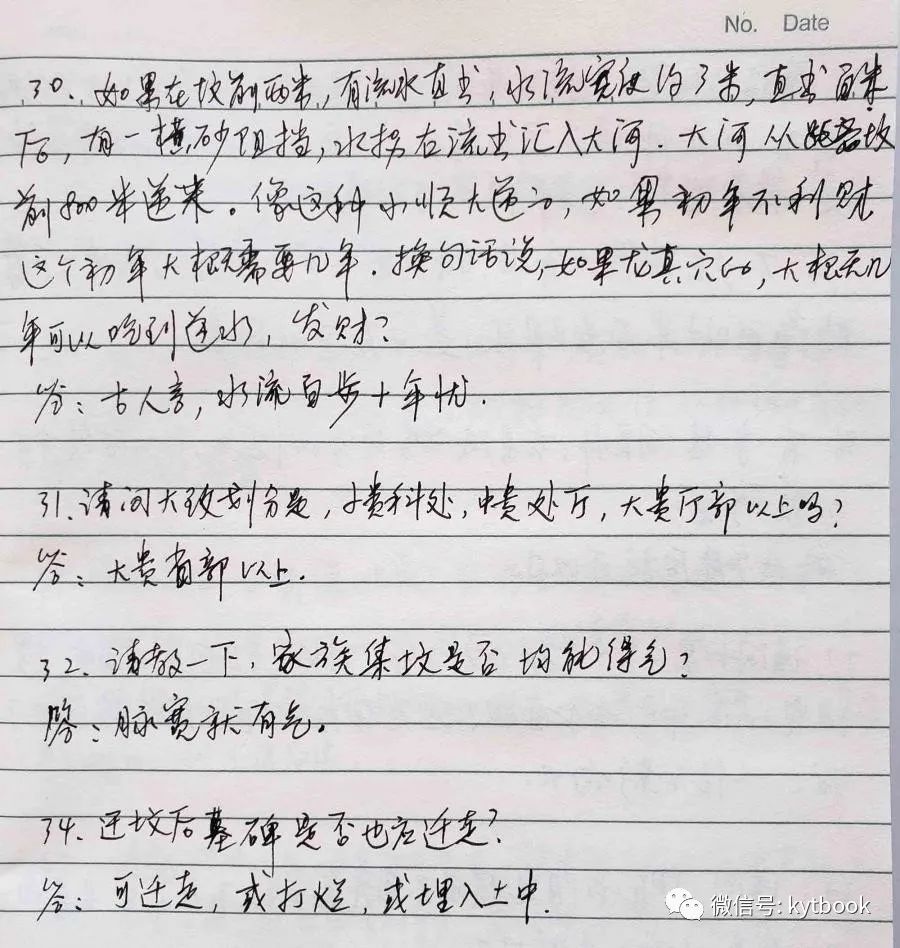 No. Date
30. 如果在坟前两米,有流水直出,水流宽度约3米,直出百米
后,有一横砂阻挡,水拐右流出汇入大河.大河从距离坟
前800米逆来。像这种小顺大逆水,如果初年不利财
这个初年大概需要几年.换句话说,如果龙真穴的,大概天几
年可以吃到逆水,发财?
答:古人言,水流百步十年忧.
31.请问大致划分是,小贵科处,中贵处厅,大贵厅部以上吗?
答:大贵省部以上.
32.请教一下,家族集坟是否均能得气?
答:脉宽就有气。
34.迁坟后墓碑是否也应迁走?
答:可迁走,或打烂,或埋入土中.
微信号: kytbook